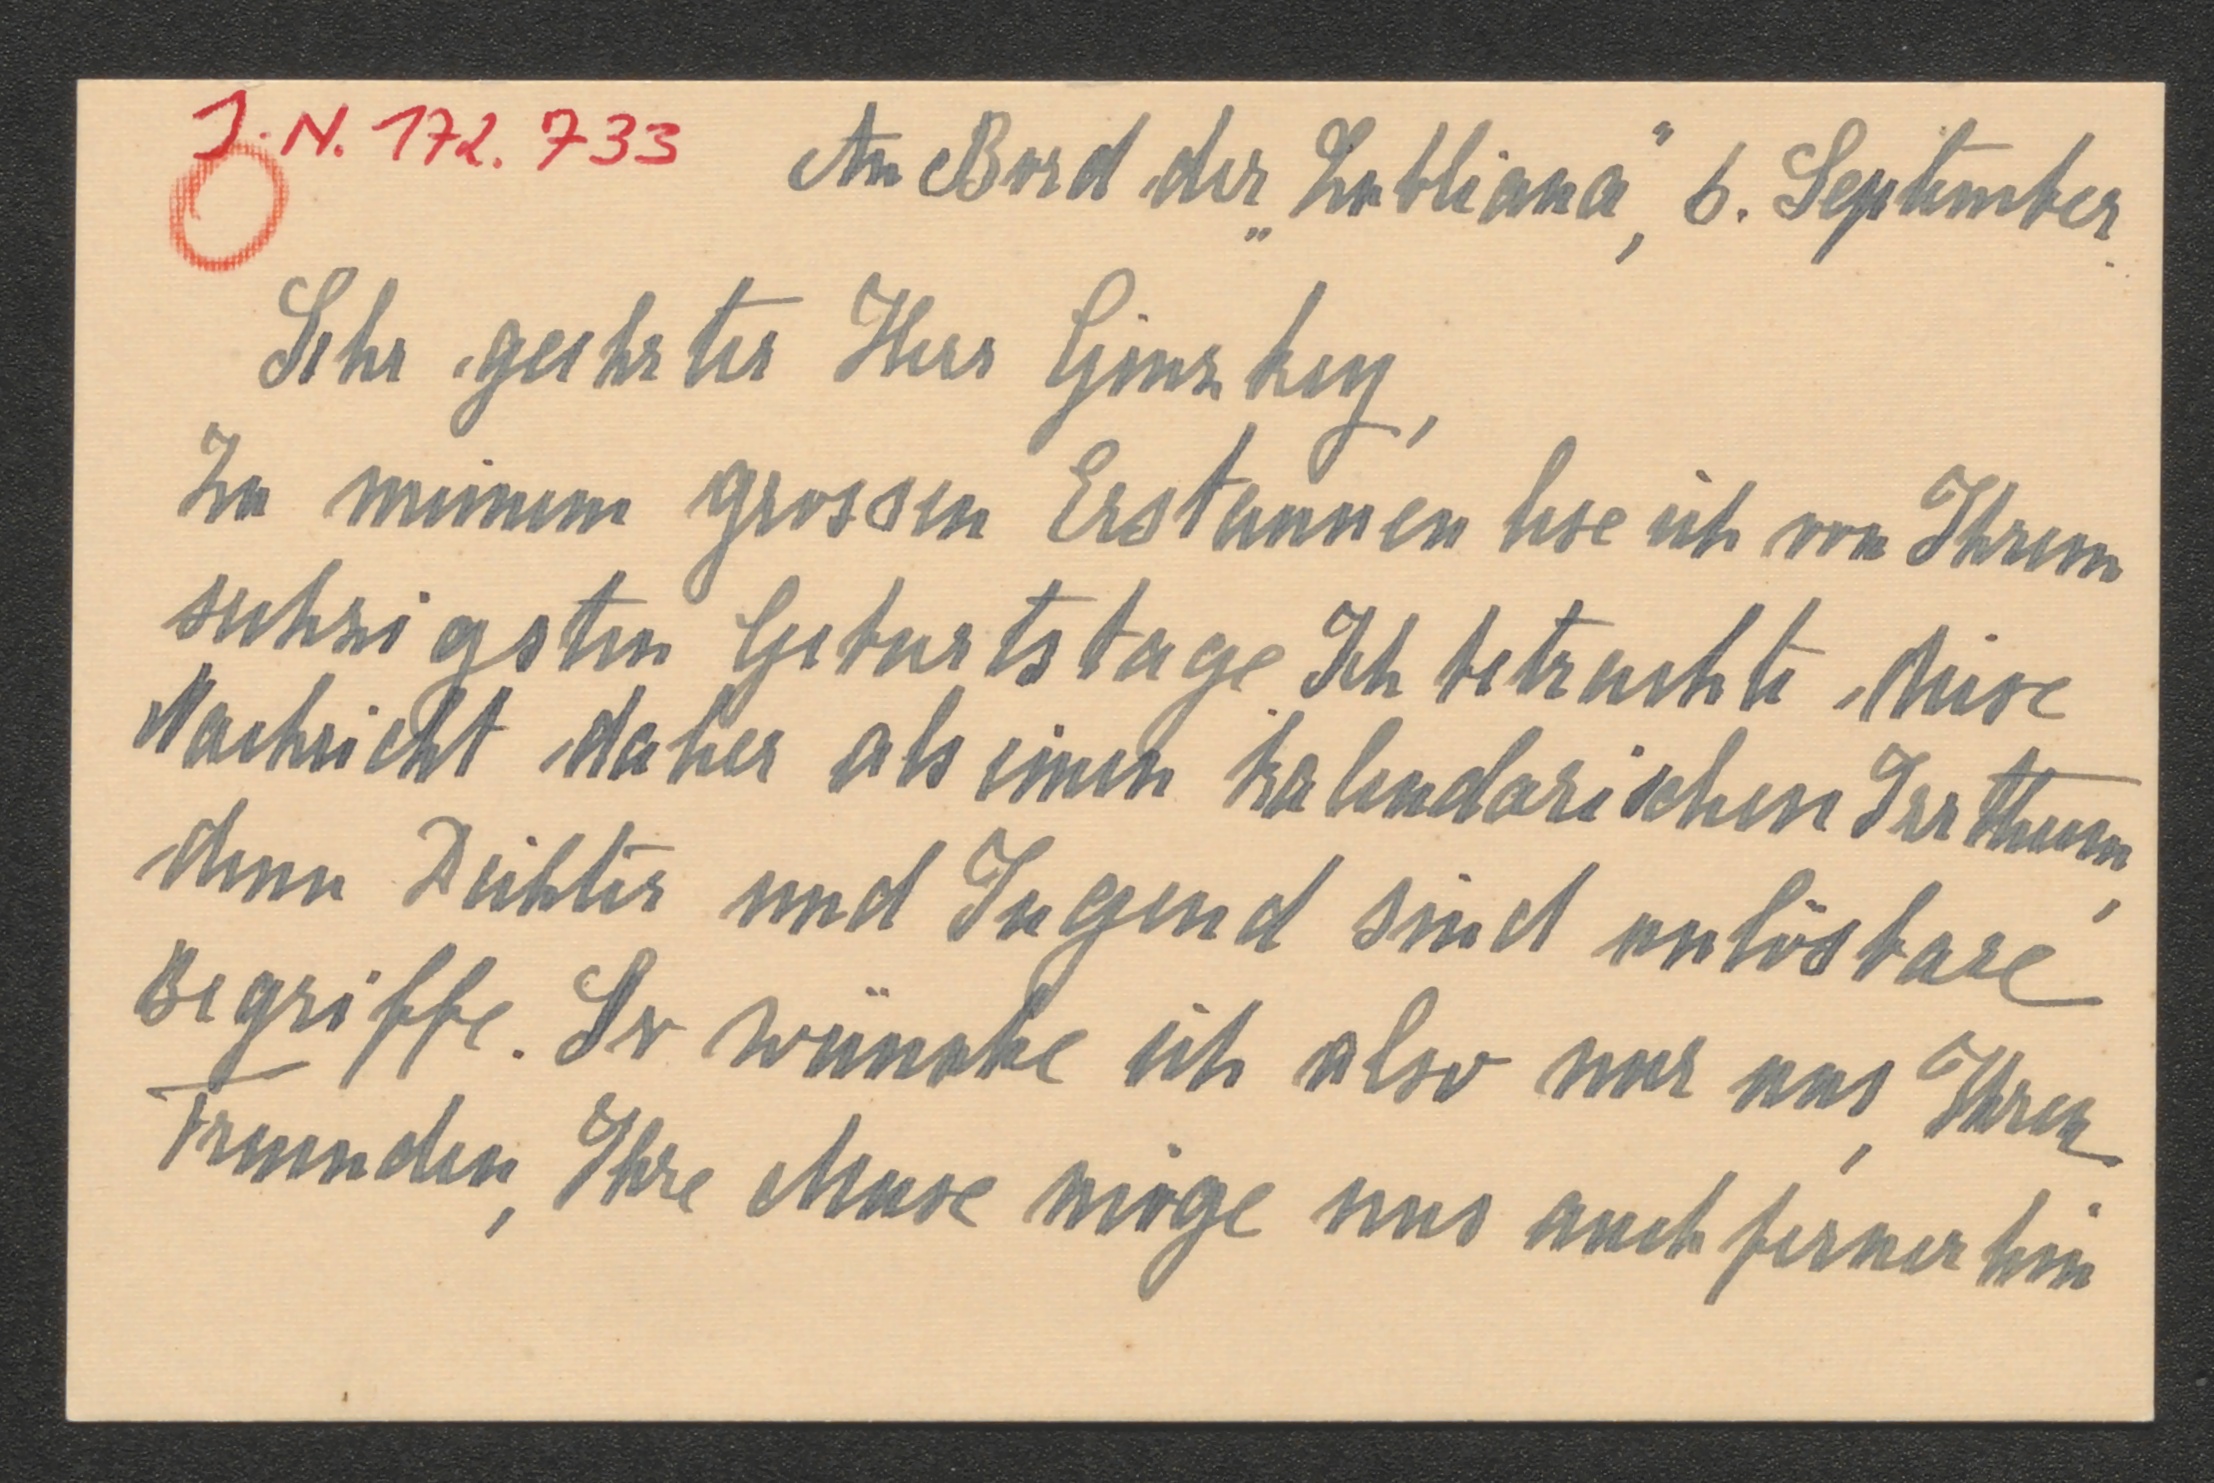 J. N. 172.733
An Bord der „Lubliana", 6. September
Sehr geehrter Herr Ginzkey,
Zu meinem grossen Erstaunen lese ich von Ihrem
sechzigsten Geburtstage. Ich betrachte diese
Nachricht daher als einen kalendarischen Irrthum,
denn Dichter und Jugend sind unlösbare
Begriffe. So wünsche ich also nur uns, Ihren
Freunden, Ihre Muse möge uns auch fernerhin